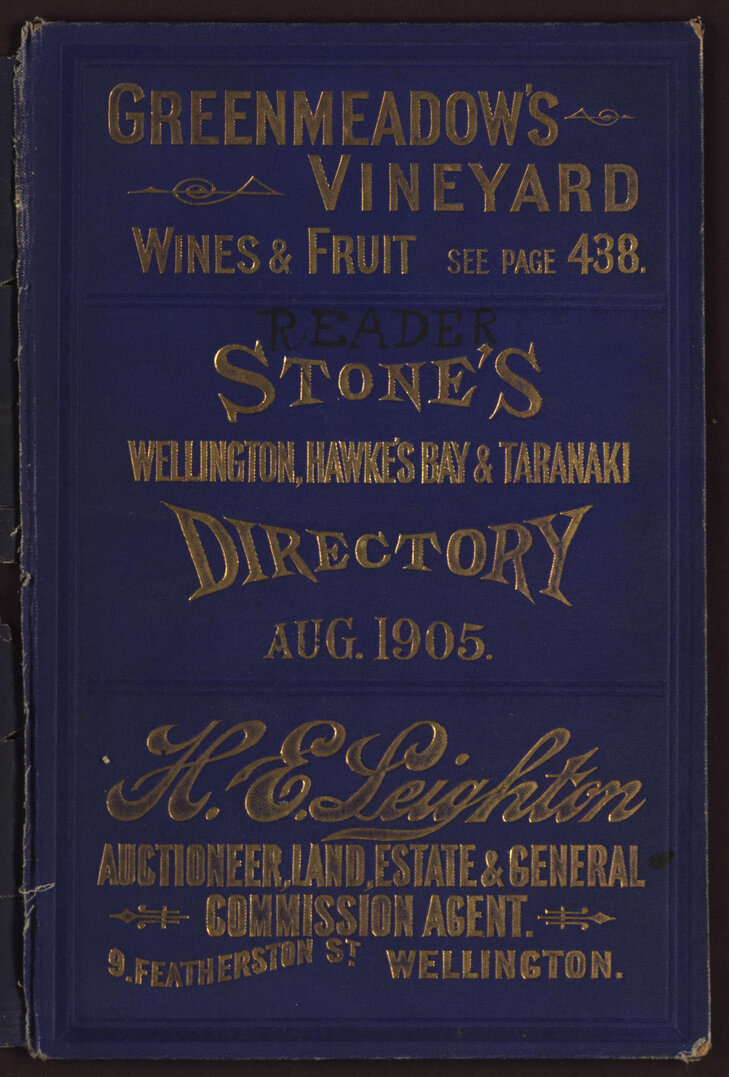 GREENMEADOW'S
VINEYARD
WINES & FRUIT SEE PAGE 438.
READER
STONE'S
WELLINGTON, HAWKE'S BAY & TARANAKI
DIRECTORY
AUG. 1905.
H. E. Leighton
AUCTIONEER, LAND, ESTATE & GENERAL
COMMISSION AGENT.
9. FEATHERSTON ST WELLINGTON.